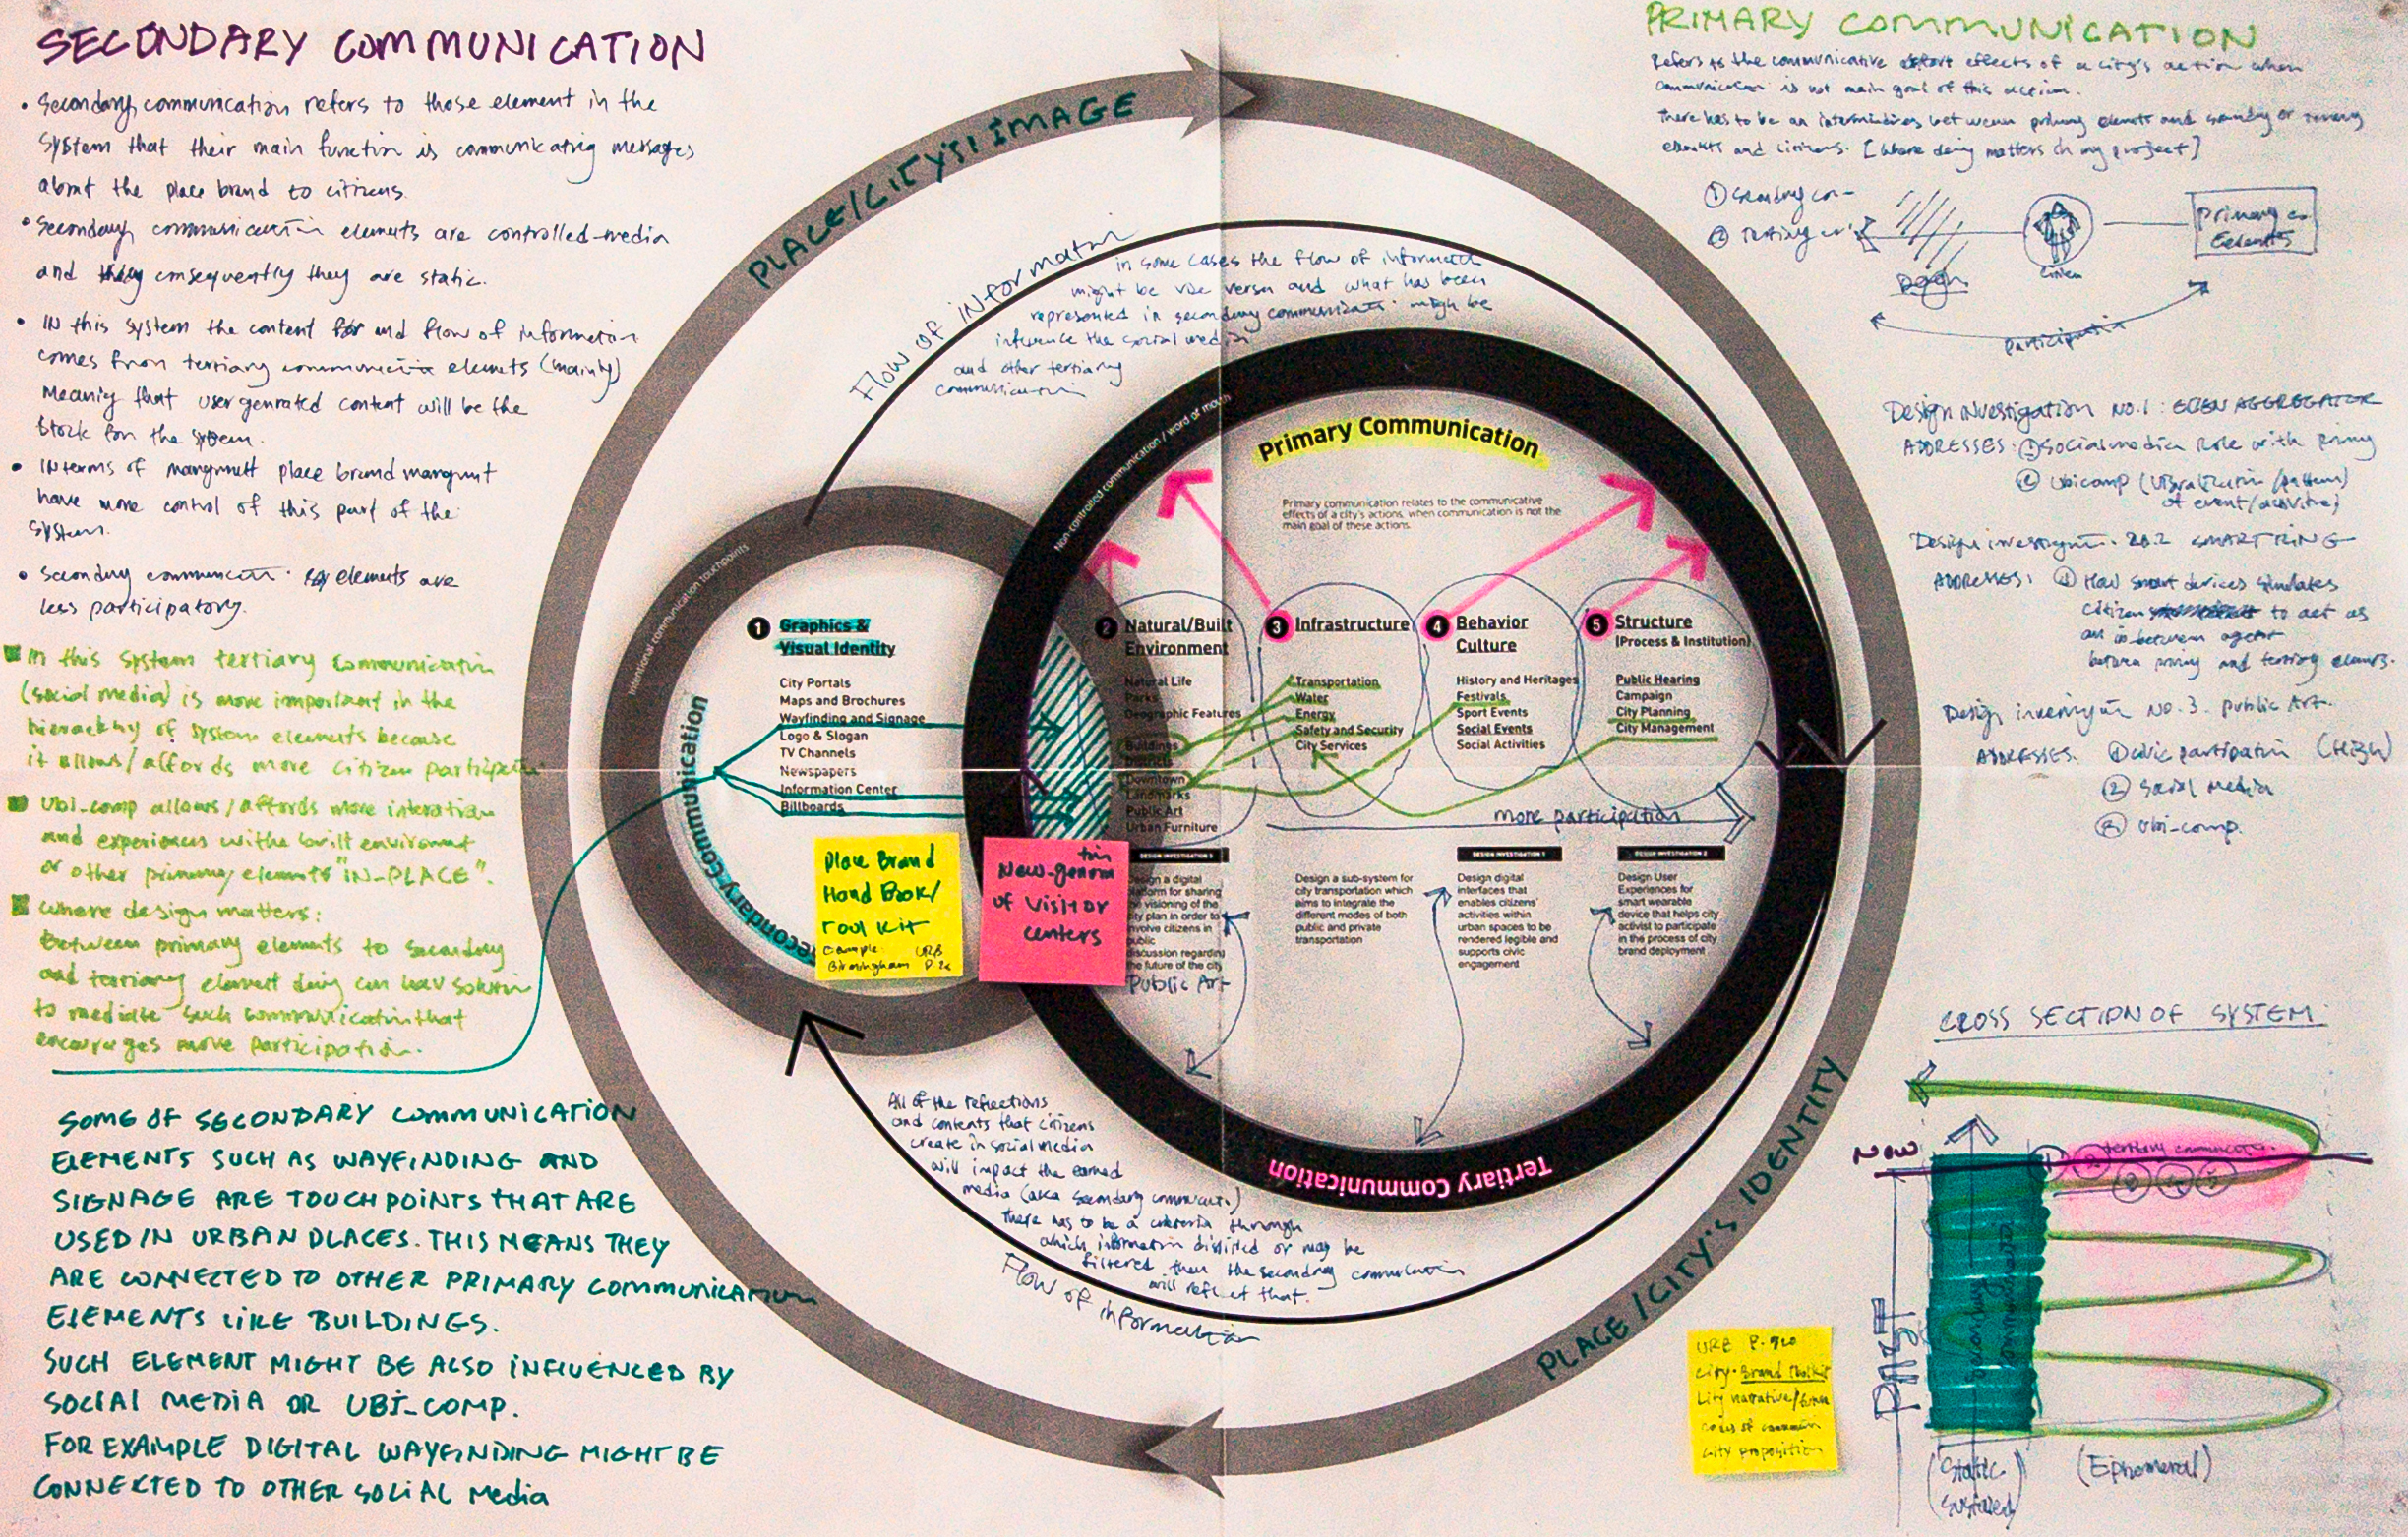 SECONDARY COMMUNICATION
• Secondary communication refers to those element in the
system that their main function is communicating messages
about the place brand to citizens.
• Secondary communication elements are controlled-media
and consequently they are static.
• IN this system the content and flow of information
comes from tertiary elements (mainly)
Meanig that user genrated content will be the
stock for the system.
• INterms of place brand
have more control of this part of the
system.
• Secondary elements are
less participatory.
In this system tertiary communication
(social media) is more important in the
hierarchy of system elements because
it allows/affords more citizen
Ubi-comp allows/affords more interaction
and experiences withe built enviroment
or other primary elements "IN-PLACE".
Where design matters:
Between primary elements to secondary
and tertiary element can
to mediate such communication that
encourages more participation.
SOME OF SECONDARY COMMUNICATION
ELEMENTS SUCH AS WAYFINDING AND
SIGNAGE ARE TOUCHPOINTS THAT ARE
USED IN URBAN PLACES. THIS MEANS THEY
ARE CONNECTED TO OTHER PRIMARY COMMUNICATION
ELEMENTS LIKE BUILDINGS.
SUCH ELEMENT MIGHT BE ALSO INFLUENCED BY
SOCIAL MEDIA OR UBI-COMP.
FOR EXAMPLE DIGITAL WAYFINDING MIGHT BE
CONNECTED TO OTHER SOCIAL MEDIA
PLACE/CITY'S IMAGE
Flow of information
in some cases the flow of information
might be vise versa and what has been
represented in secondary might be
the social media
and other tertiary
communication
Non-controlled communication / word of mouth
Intentional communication touchpoints
Secondary Communication
Primary Communication
Primary communication relates to the communicative
effects of a city's actions, when communication is not the
main goal of these actions.
1 Graphics &
Visual Identity
City Portals
Maps and Brochures
Wayfinding and Signage
Logo & Slogan
TV Channels
Newspapers
Information Center
Billboards
2 Natural/Built
Environment
Natural Life
Parks
Geographic Features
Buildings
Districts
Downtown
Landmarks
Public Art
Urban Furniture
3 Infrastructure
Transportation
Water
Energy
Safety and Security
City Services
4 Behavior
Culture
History and Heritages
Festivals
Sport Events
Social Events
Social Activities
5 Structure
(Process & Institution)
Public Hearing
Campaign
City Planning
City Management
more participation
Place Brand
Hand Book/
Tool Kit
Example: URB
Birmingham
of Visitor
centers
DESIGN INVESTIGATION 3
Design a digital
platform for sharing
the visioning of the
city plan in order to
involve citizens in
public
discussion regarding
the future of the city
Public Art
Design a sub-system for
city transportation which
aims to integrate the
different modes of both
public and private
transportation
DESIGN INVESTIGATION 1
Design digital
interfaces that
enables citizens'
activities within
urban spaces to be
rendered legible and
supports civic
engagement
DESIGN INVESTIGATION 2
Design User
Experiences for
smart wearable
device that helps city
activist to participate
in the process of city
brand deployment
Tertiary Communication
All of the reflections
and contents that citizens
create in social media
will impact the earned
media (aka secondary)
there has to be a criteria through
which information or may be
filtered then the secondary communication
will reflect that.
Flow of information
PLACE/CITY'S IDENTITY
PRIMARY COMMUNICATION
Refers to the communicative effects of a city's action when
communication is not main goal of this action.
There has to be an between primary elements and secondary or tertiary
elements and citizens. [Where matters in my project]
① Secondary
② Tertiary
Design
Citizen
Primary
Elements
participation
Design investigation No.1: AGGREGATOR
ADDRESSES: ① Social media Role with
② Ubicomp
of event/activities
Design SMART RING
ADDRESSES: ① How smart devices
citizens to act as
an in-between agent
between and tertiary elements.
Design No. 3. Public Art.
ADDRESSES. ① Civic participation (High)
② Social Media
③ Ubi-comp.
CROSS SECTION OF SYSTEM:
NOW
tertiary
PAST
Secondary
(Static
Sustained)
(Ephemeral)
City Brand Toolkit
City narrative
codes of
City proposition